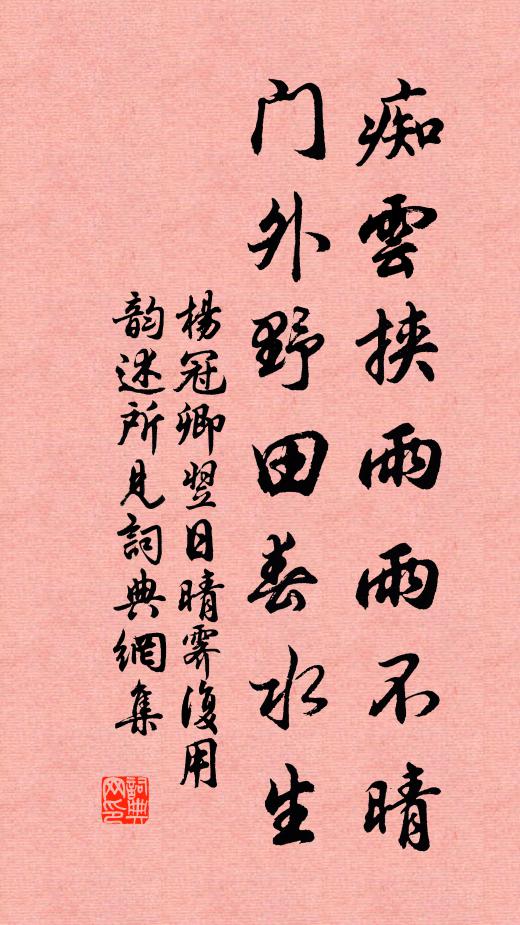 痴雲挾雨雨不晴
门外野田春水生
楊冠卿翌日晴霽復用
韵述所見詞典網集
詞典網印